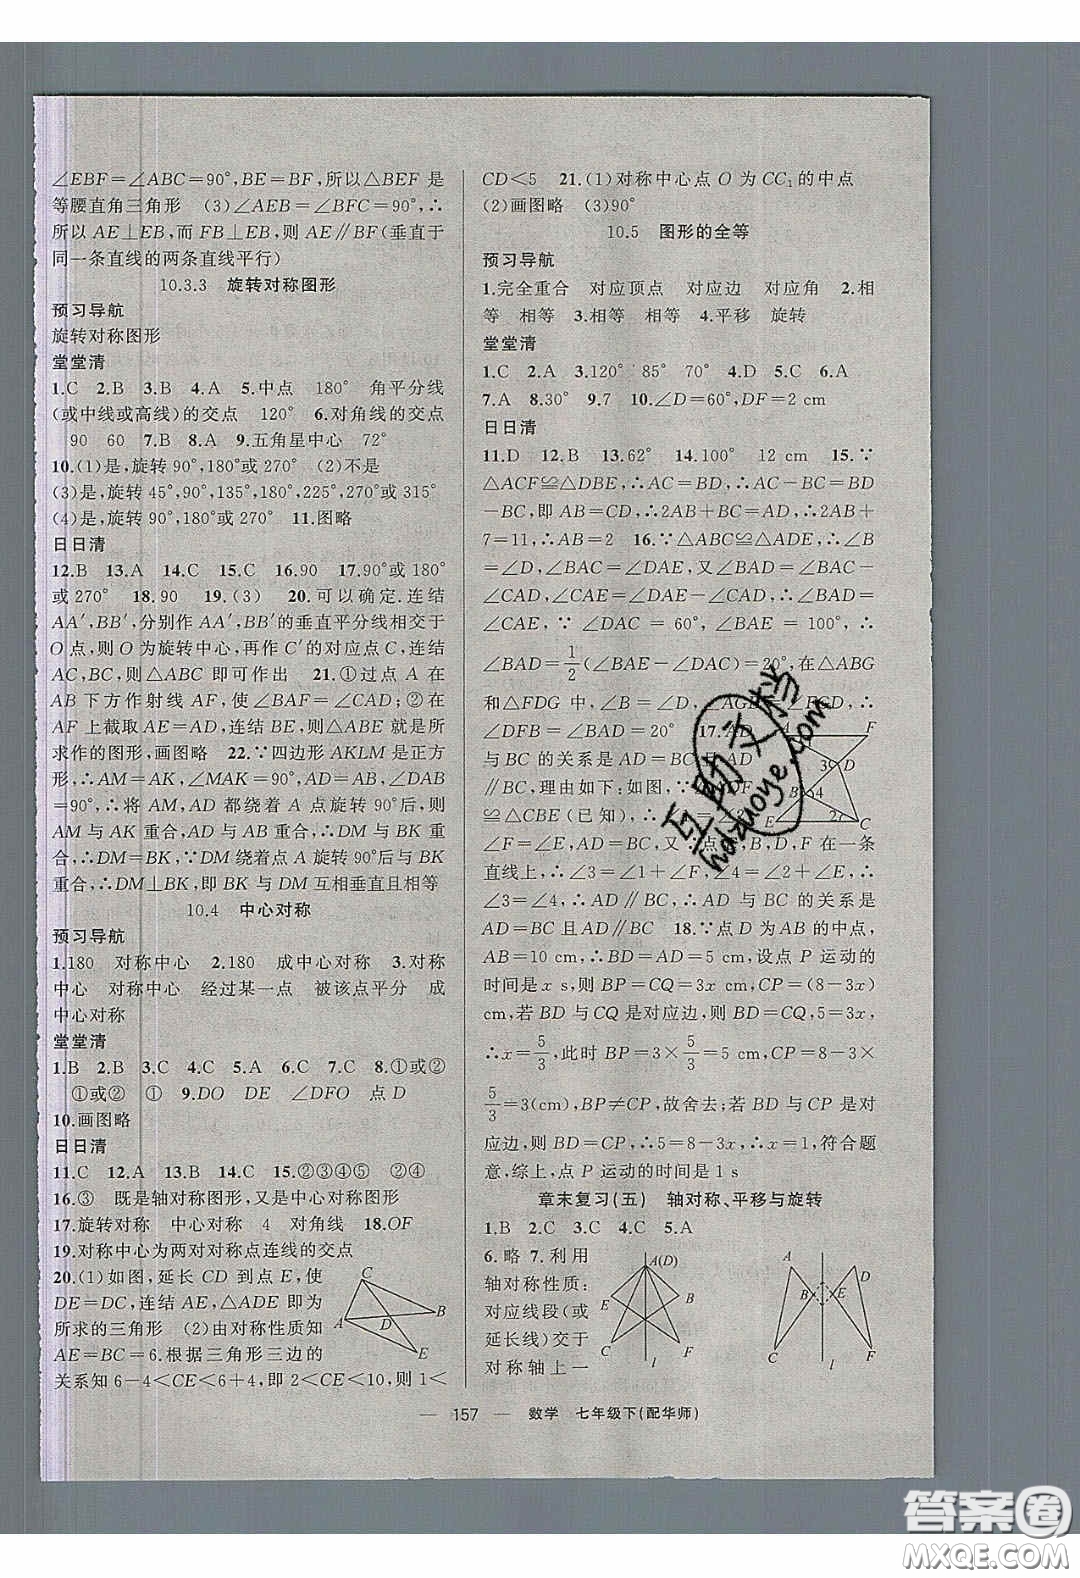 ∠EBF＝∠ABC＝90°,BE＝BF,所以△BEF 是
等腰直角三角形　(3)∠AEB＝∠BFC＝90°,∴
所以 AE⊥EB,而 FB⊥EB,则 AE∥BF(垂直于
同一条直线的两条直线平行)
10.3.3　旋转对称图形
预习导航
旋转对称图形
堂堂清
1.C　2.B　3.B　4.A　5.中点　180°　角平分线
(或中线或高线)的交点　120°　6.对角线的交点
90　60　7.B　8.A　9.五角星中心　72°
10.(1)是,旋转 90°,180°或 270°　(2)不是
(3)是,旋转 45°,90°,135°,180°,225°,270°或 315°
(4)是,旋转 90°,180°或 270°　11.图略
日日清
12.B　13.A　14.C　15.C　16.90　17.90°或180°
或 270°　18.90　19.(3)　20.可以确定.连结
AA′,BB′,分别作 AA′,BB′的垂直平分线相交于
O 点,则 O 为旋转中心,再作 C′的对应点 C,连结
AC,BC,则△ABC 即可作出　21.①过点 A 在
AB 下方作射线 AF,使∠BAF＝∠CAD;②在
AF 上截取 AE＝AD,连结 BE,则△ABE 就是所
求作的图形,画图略　22.∵四边形 AKLM 是正方
形,∴AM＝AK,∠MAK＝90°,∵AD＝AB,∠DAB
＝90°,∴将 AM,AD 都绕着 A 点旋转 90°后,则
AM 与 AK 重合,AD 与 AB 重合,∴DM＝BK 重
合,∴DM＝BK,DM 绕着点 A 旋转 90°后与 BK
重合,∴DM⊥BK,即 BK 与 DM 互相垂直且相等
10.4　中心对称
预习导航
1.180　对称中心　2.180　成中心对称　3.对称
中心　对称中心　经过某一点　被该点平分　成
中心对称
堂堂清
1.B　2.B　3.C　4.C　5.A　6.C　7.C　8.①或②
①或②　①　9.DO　DE　∠DFO　点 D
10.画图略
日日清
11.C　12.A　13.B　14.C　15.②③④⑤　②④
16.③　既是轴对称图形,又是中心对称图形
17.旋转对称　中心对称　4　对角线　18.OF
19.对称中心为两对对称点连线的交点
20.(1)如图,延长 CD 到点 E,使
DE＝DC,连结 AE,△ADE 即为
所求的三角形　(2)由对称性质知
AE＝BC＝6.根据三角形三边的
关系知 6－4＜CE＜6＋4,即 2＜CE＜10,则 1＜
C
A
D
B
E
CD＜5　21.(1)对称中心点 O 为 CC₁的中点
(2)画图略　(3)90°
10.5　图形的全等
预习导航
1.完全重合　对应顶点　对应边　对应角　2.相
等　相等　3.相等　相等　4.平移　旋转
堂堂清
1.C　2.A　3.120°　85°　70°　4.D　5.C　6.A
7.A　8.30°　9.7　10.∠D＝60°,DF＝2 cm
日日清
11.D　12.B　13.62°　14.100°　12 cm　15.∵
△ACF≌△DBE,∴AC＝BD,∴AC－BC＝BD
－BC,即 AB＝CD,∴2AB＋BC＝AD,∴2AB＋
7＝11,∴AB＝2　16.∵△ABC≌△ADE,∴∠B
＝∠D,∠BAC＝∠DAE,又∠BAD＝∠BAC－
∠CAD,∠CAE＝∠DAE－∠CAD,∴∠BAD＝
∠CAE,∵∠DAC＝60°,∠BAE＝100°,∴
∠BAD＝1/2(∠BAE－∠DAC)＝20°,在△ABG
和△FDG 中,∠B＝∠D,∠AGB＝∠FGD,∴
∠DFB＝∠BAD＝20°　17.AD
与 BC 的关系是 AD＝BC 且 AD
∥BC,理由如下:如图,
≌△CBE(已知),∴AD＝BC,
∠F＝∠E,AD＝BC,又∵点 E,B,D,F 在一条
直线上,∴∠3＝∠1＋∠F,∠4＝∠2＋∠E,∴
∠3＝∠4,∴AD∥BC,∴AD 与 BC 的关系是
AD＝BC 且 AD∥BC　18.∵点 D 为 AB 的中点,
AB＝10 cm,∴BD＝AD＝5 cm,设点 P 运动的
时间是 x s,则 BP＝CQ＝3x cm,CP＝(8－3x)
cm,若 BD 与 CQ 是对应边,则 BD＝CQ,5＝3x,
∴x＝5/3,此时 BP＝3×5/3＝5 cm,CP＝8－3×
5/3＝3(cm),BP≠CP,故舍去;若 BD 与 CP 是对
应边,则 BD＝CP,∴5＝8－3x,∴x＝1,符合题
意,综上,点 P 运动的时间是 1 s
F
3
D
B
4
E
2
C
章末复习(五)　轴对称、平移与旋转
1.B　2.C　3.C　4.C　5.A
6.略 7.利用
轴对称性质:
对应线段(或
延长线)交于
对称轴上一
A(D)
E
B
C
F
l
A
D
B
E
C
F
l
— 157 —　数学　七年级下(配华师)
互助文档
hdzuoye.com
答案卷
MXQE.COM